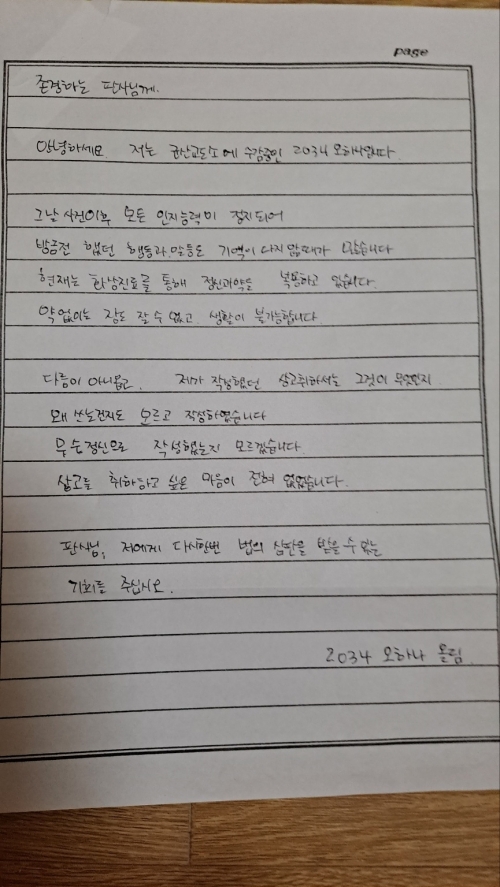 page
존경하는 판사님께.
안녕하세요 저는 군산교도소에 수감중인 2034 오하나입니다.
그날 사건이후 모든 인지능력이 정지되어
방금전 했던 행동과, 말들도 기억이 나지 않을때가 많습니다
현재는 화상진료를 통해 정신과약을 복용하고 있습니다.
약 없이는 잠도 잘 수 없고. 생활이 불가능합니다
다름이 아니옵고. 제가 작성했던 상고취하서는 그것이 무엇인지
왜 쓰는건지도 모르고 작성하였습니다
무슨정신으로 작성했는지 모르겠습니다.
상고를 취하하고 싶은 마음이 전혀 없었습니다.
판사님, 저에게 다시한번 법의 심판을 받을 수 있는
기회를 주십시오.
2034 오하나 올림.